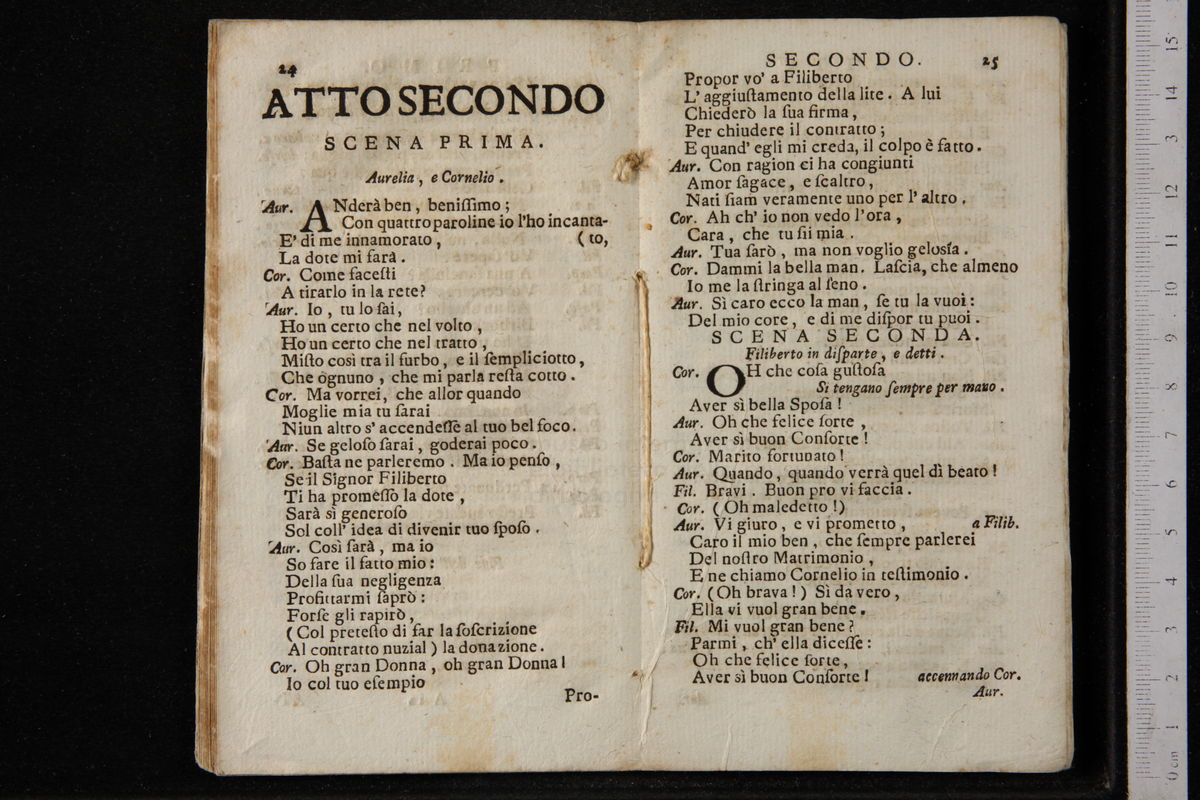 24
ATTO SECONDO
SCENA PRIMA.
Aurelia, e Cornelio.
Aur. ANderà ben, beniſſimo;
Con quattro paroline io l'ho incanta-
E' di me innamorato, (to,
La dote mi farà.
Cor. Come faceſti
A tirarlo in la rete?
Aur. Io, tu lo ſai,
Ho un certo che nel volto,
Ho un certo che nel tratto,
Miſto così tra il furbo, e il ſempliciotto,
Che ognuno, che mi parla reſta cotto.
Cor. Ma vorrei, che allor quando
Moglie mia tu ſarai
Niun altro s' accendeſſe al tuo bel foco.
Aur. Se geloſo ſarai, goderai poco.
Cor. Baſta ne parleremo. Ma io penſo,
Se il Signor Filiberto
Ti ha promeſſo la dote,
Sarà sì generoſo
Sol coll' idea di divenir tuo ſpoſo.
Aur. Così ſarà, ma io
So fare il fatto mio:
Della ſua negligenza
Profittarmi ſaprò:
Forſe gli rapirò,
(Col preteſto di far la ſoſcrizione
Al contratto nuzial) la donazione.
Cor. Oh gran Donna, oh gran Donna!
Io col tuo eſempio
Pro-
SECONDO. 25
Propor vo' a Filiberto
L' aggiuſtamento della lite. A lui
Chiederò la ſua firma,
Per chiudere il contratto;
E quand' egli mi creda, il colpo è fatto.
Aur. Con ragion ci ha congiunti
Amor ſagace, e ſcaltro,
Nati ſiam veramente uno per l' altro.
Cor. Ah ch' io non vedo l'ora,
Cara, che tu ſii mia.
Aur. Tua ſarò, ma non voglio geloſia.
Cor. Dammi la bella man. Laſcia, che almeno
Io me la ſtringa al ſeno.
Aur. Sì caro ecco la man, ſe tu la vuoi:
Del mio core, e di me diſpor tu puoi.
SCENA SECONDA.
Filiberto in diſparte, e detti.
Cor. OH che coſa guſtoſa
Si tengano ſempre per mano.
Aver sì bella Spoſa!
Aur. Oh che felice ſorte,
Aver sì buon Conſorte!
Cor. Marito fortunato!
Aur. Quando, quando verrà quel dì beato!
Fil. Bravi. Buon pro vi faccia.
Cor. (Oh maledetto!)
Aur. Vi giuro, e vi prometto, a Filib.
Caro il mio ben, che ſempre parlerei
Del noſtro Matrimonio,
E ne chiamo Cornelio in teſtimonio.
Cor. (Oh brava!) Sì da vero,
Ella vi vuol gran bene.
Fil. Mi vuol gran bene?
Parmi, ch' ella diceſſe:
Oh che felice ſorte,
Aver sì buon Conſorte! accennando Cor.
Aur.
15
14
13
12
11
10
9
8
7
6
5
4
3
2
1
0 cm